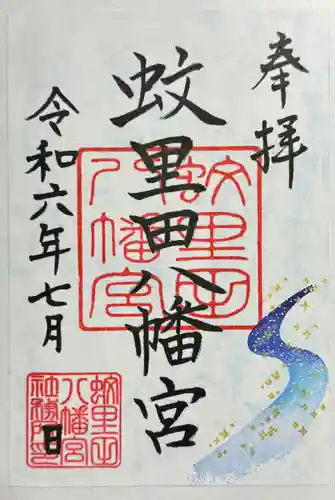 奉拝
蚊里田八幡宮
令和六年七月
日
蚊里田
八幡宮
蚊里田
八幡宮